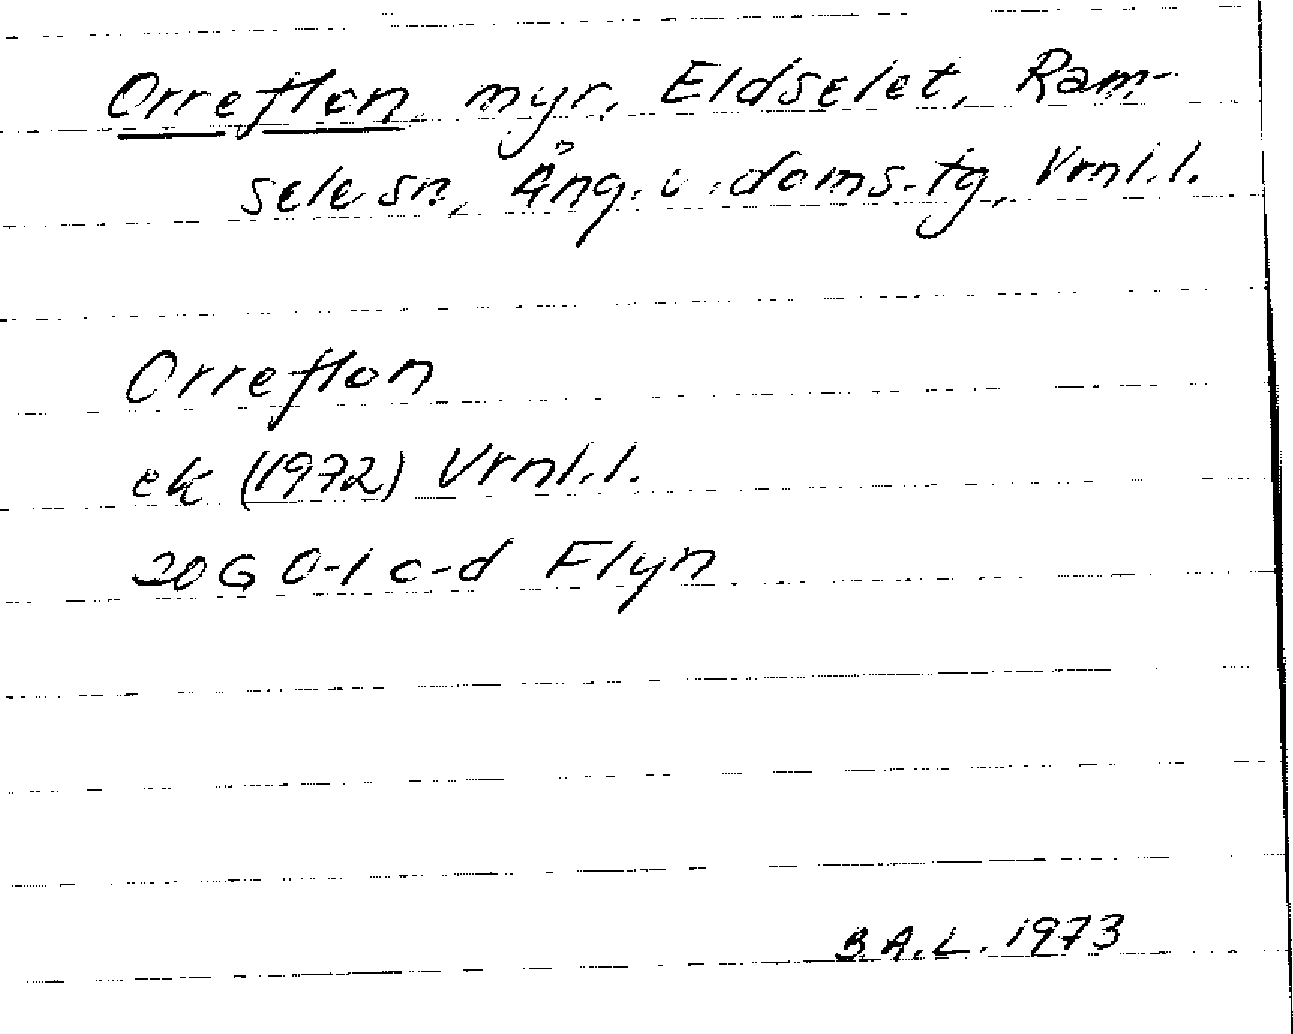 Orreflon, myr, Eldselet, Ram-
sele sn, Ång. v. doms.tg, Vrnl.l.
Orreflon
ek (1972) Vrnl.l.
20G 0-1 c-d Flyn
B.A.L. 1973